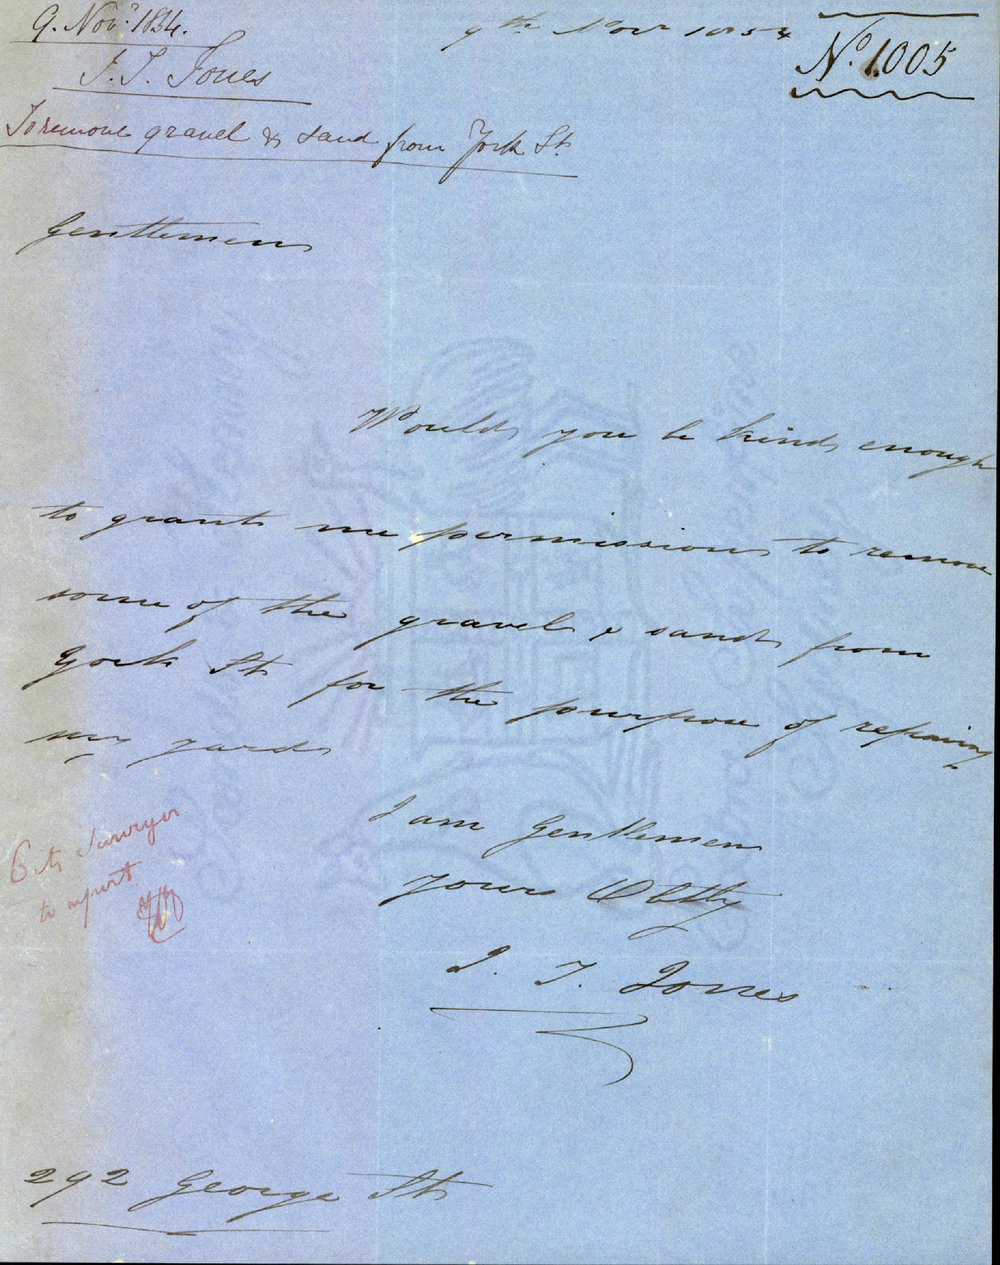 9. Nov.r 1854.
J. T. Jones
To remove gravel & sand from York St.
9th Novr 1854
No. 1005
Gentlemen
Would you be kind enough
to grant me permission to remove
some of the gravel & sand from
York St for the purpose of repairing
my yard
I am Gentlemen
yours Obtly
J. T. Jones
City Surveyor
to report
292 George St